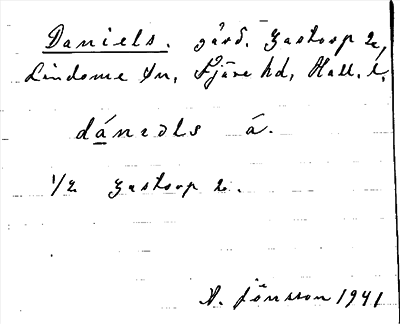 Daniels. gård. Gastorp 2,
Lindome sn, Fjäre hd, Hall. l.
dánəls á.
1/2 Gastorp 2.
A. Jönsson 1941